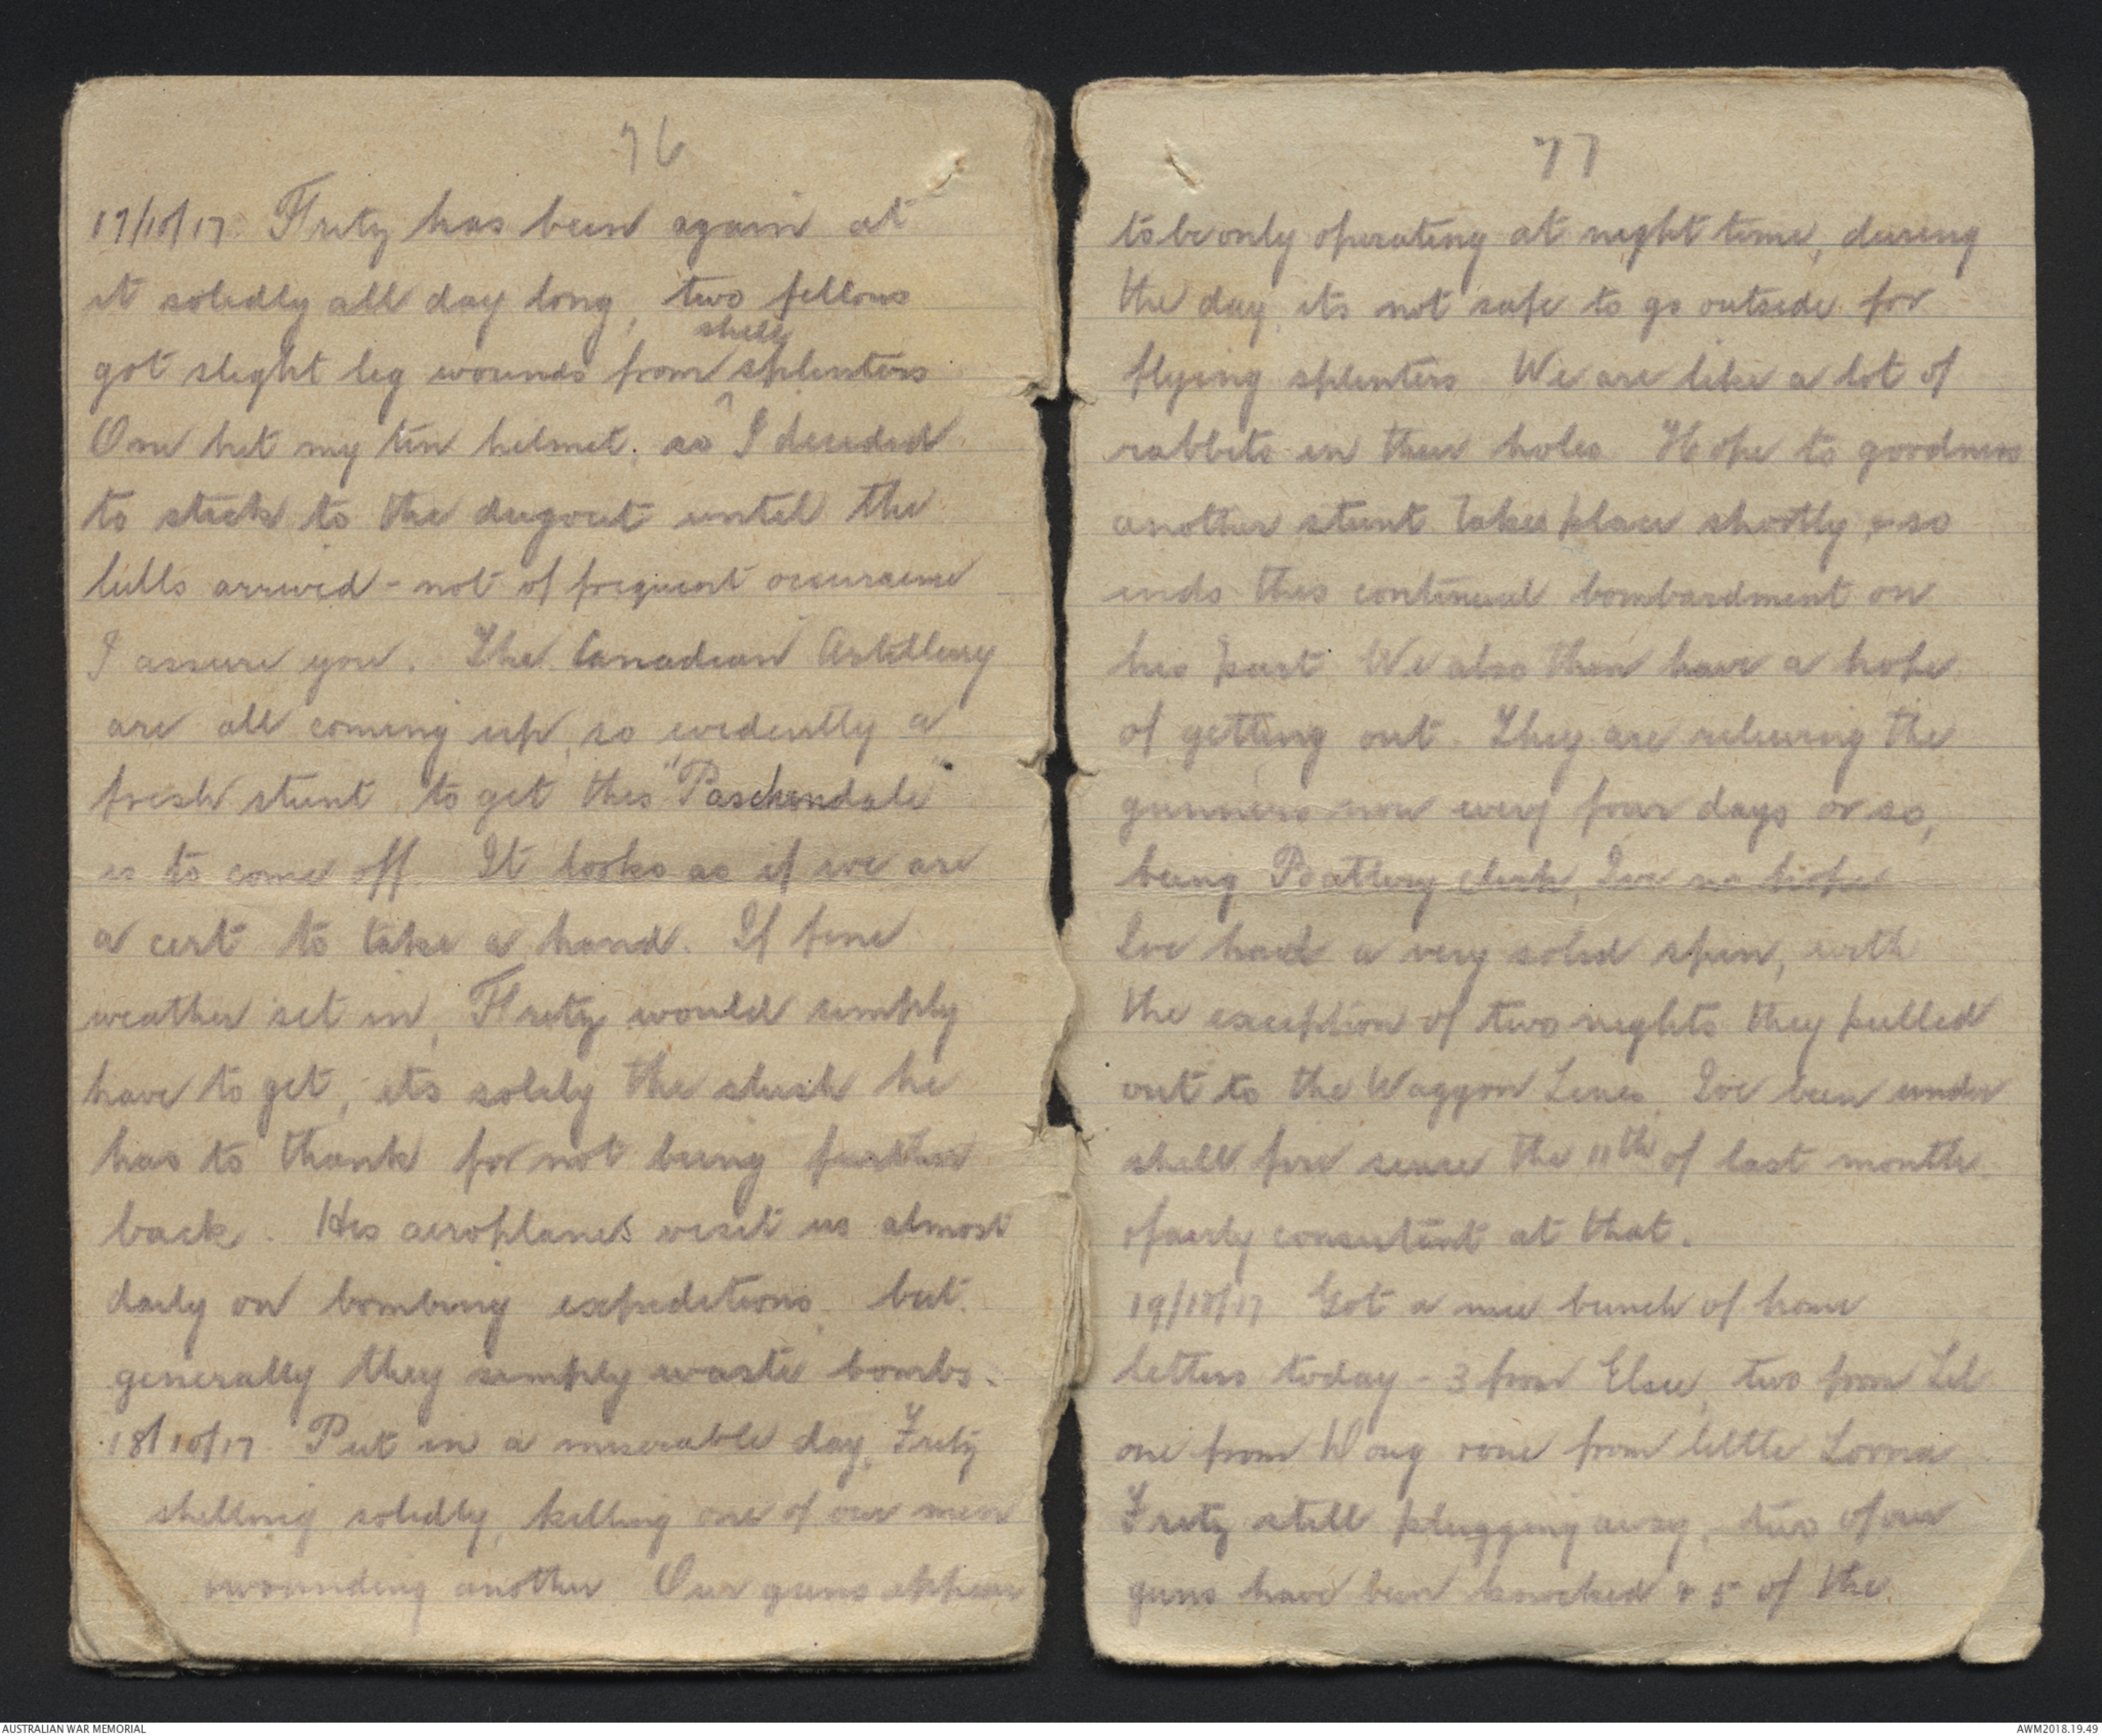 76
17/10/17. Fritz has been again at
it solidly all day long, two fellows
shell
got slight leg wounds from ^ splinters
One hit my tin helmet, so I decided
to stick to the dugout until the
lulls arrived - not of frequent occurance
I assure you. The Canadian Artillery
are all coming up, so evidently a
fresh stunt, to get this "Paschendale"
is to come off. It looks as if we are
a cert to take a hand. If fine
weather set in, Fritz would simply
have to get, its solely the slush he
has to thank for not being further
back. His aeroplanes visit us almost
daily on bombing expeditions, but
generally they simply waste bombs.
18/10/17. Put in a miserable day, Fritz
shelling solidly, killing one of our men
& wounding another. Our guns appear
77
to be only operating at night time, during
the day, its not safe to go outside for
flying splinters. We are like a lot of
rabbits in their holes. Hope to goodness
another stunt takes place shortly, & so
ends this continual bombardment on
his part. We also then have a hope
of getting out. They are relieving the
gunners now every four days or so,
being Battery clerk, Ive no hope
Ive had a very solid spin, with
the exception of two nights they pulled
out to the Waggon Lines, Ive been under
shell fire since the 11th of last month
& fairly consistant at that.
19/10/17 Got a nice bunch of home
letters today - 3 from Elsie, two from Lil
one from Woug & one from little Lorna
Fritz still plugging away, two of our
guns have been knocked & 5 of the
AUSTRALIAN WAR MEMORIAL
AWM2018.19.49